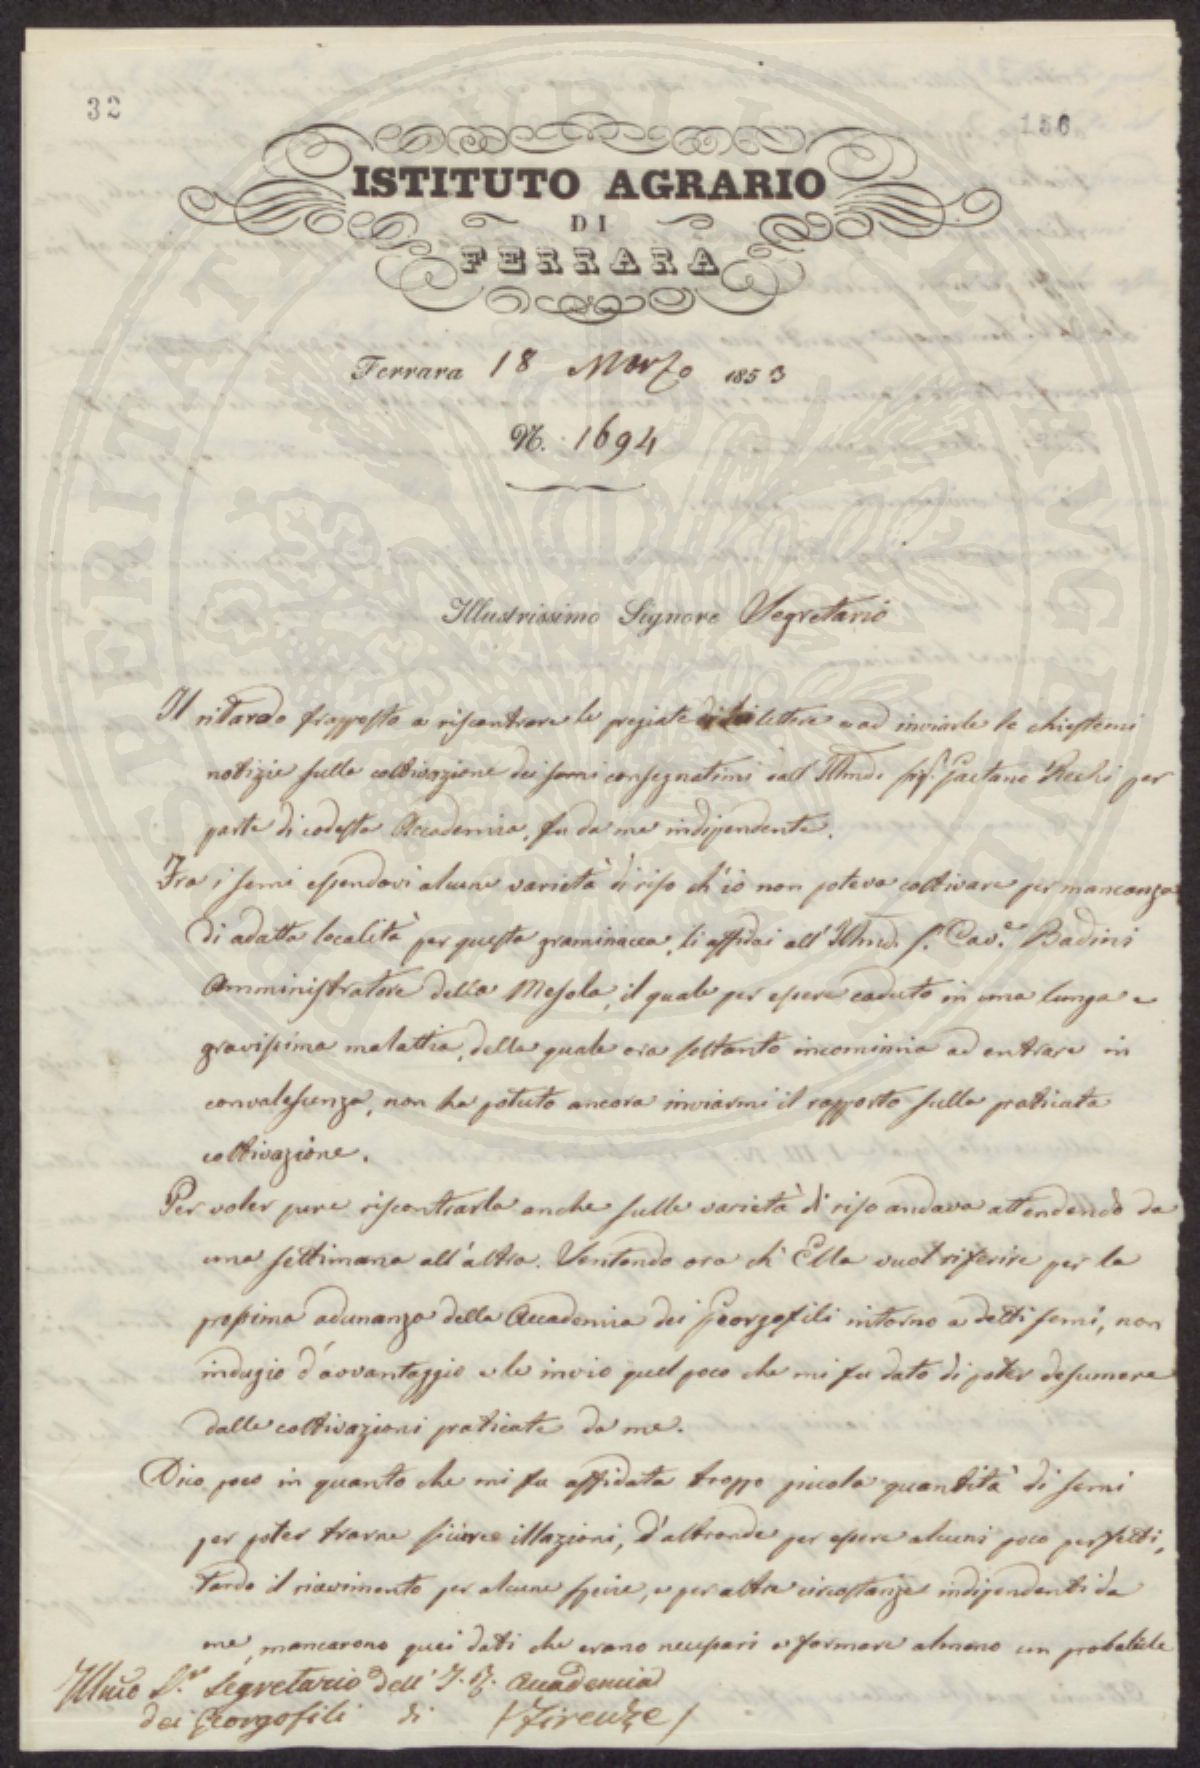 32
156
ISTITUTO AGRARIO
DI
FERRARA
Ferrara 18 Marzo 1853
N. 1694
Illustrissimo Signore Segretario
Il ritardo frapposto a riscontrare le pregiate di Lei lettere e ad inviarle le chiestemi
notizie sulla coltivazione dei semi consegnatimi dall' Illmo. Sigr. Gaetano Recchi per
parte di codesta Accademia, fu da me indipendente.
Fra i semi essendovi alcune varietà di riso ch'io non poteva coltivare per mancanza
di adatta località per questa graminacea, li affidai all' Illmo. S. Cav.e Badini
Amministratore della Mesola, il quale per essere caduto in una lunga e
gravissima malattia, della quale ora soltanto incomincia ad entrare in
convalescenza, non ha potuto ancora inviarmi il rapporto sulla praticata
coltivazione.
Per voler pure riscontrarla anche sulle varietà di riso andava attendendo da
una settimana all'altra. Sentendo ora ch' Ella vuol riferire per la
prossima adunanza della Accademia dei Georgofili intorno a detti semi, non
indugio d'avvantaggio e le invio quel poco che mi fu dato di poter desumere
dalle coltivazioni praticate da me.
Dico poco in quanto che mi fu affidata troppo piccola quantità di semi
per poter trarne sicure illazioni, d'altronde per essere alcuni poco perfetti,
tardo il ricevimento per alcune specie, e per altre circostanze indipendenti da
me, mancarono quei dati che erano necessari a formare almeno un probabile
Illmo S.r Segretario dell' I. R. Accademia
dei Georgofili di (Firenze)
PROSPERITATI PUBLICAE AUGENDAE